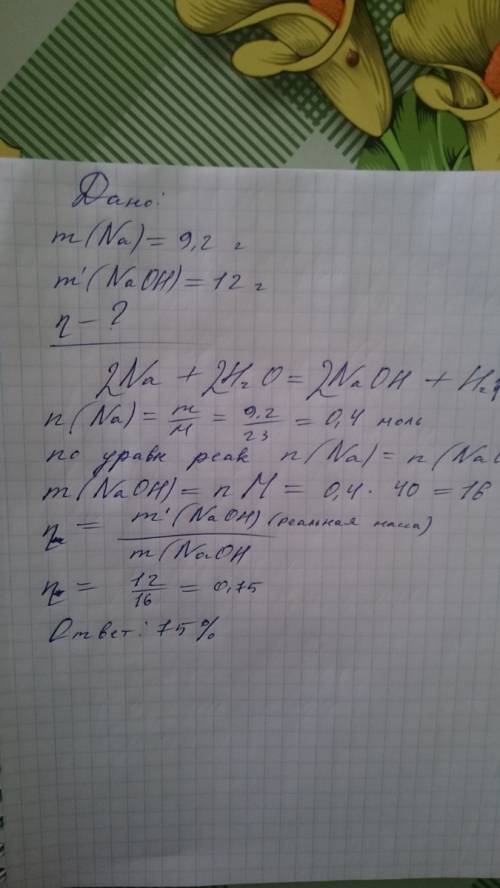 Дано:
m(Na) = 9,2 г
m'(NaOH) = 12 г
η - ?
2Na + 2H₂O = 2NaOH + H₂↑
n(Na) = m/M = 9,2/23 = 0,4 моль
по уравн реак n(Na) = n(Na
m(NaOH) = n M = 0,4 · 40 = 16
η = m'(NaOH) (реальная масса) / m(NaOH
η = 12/16 = 0,75
Ответ: 75%